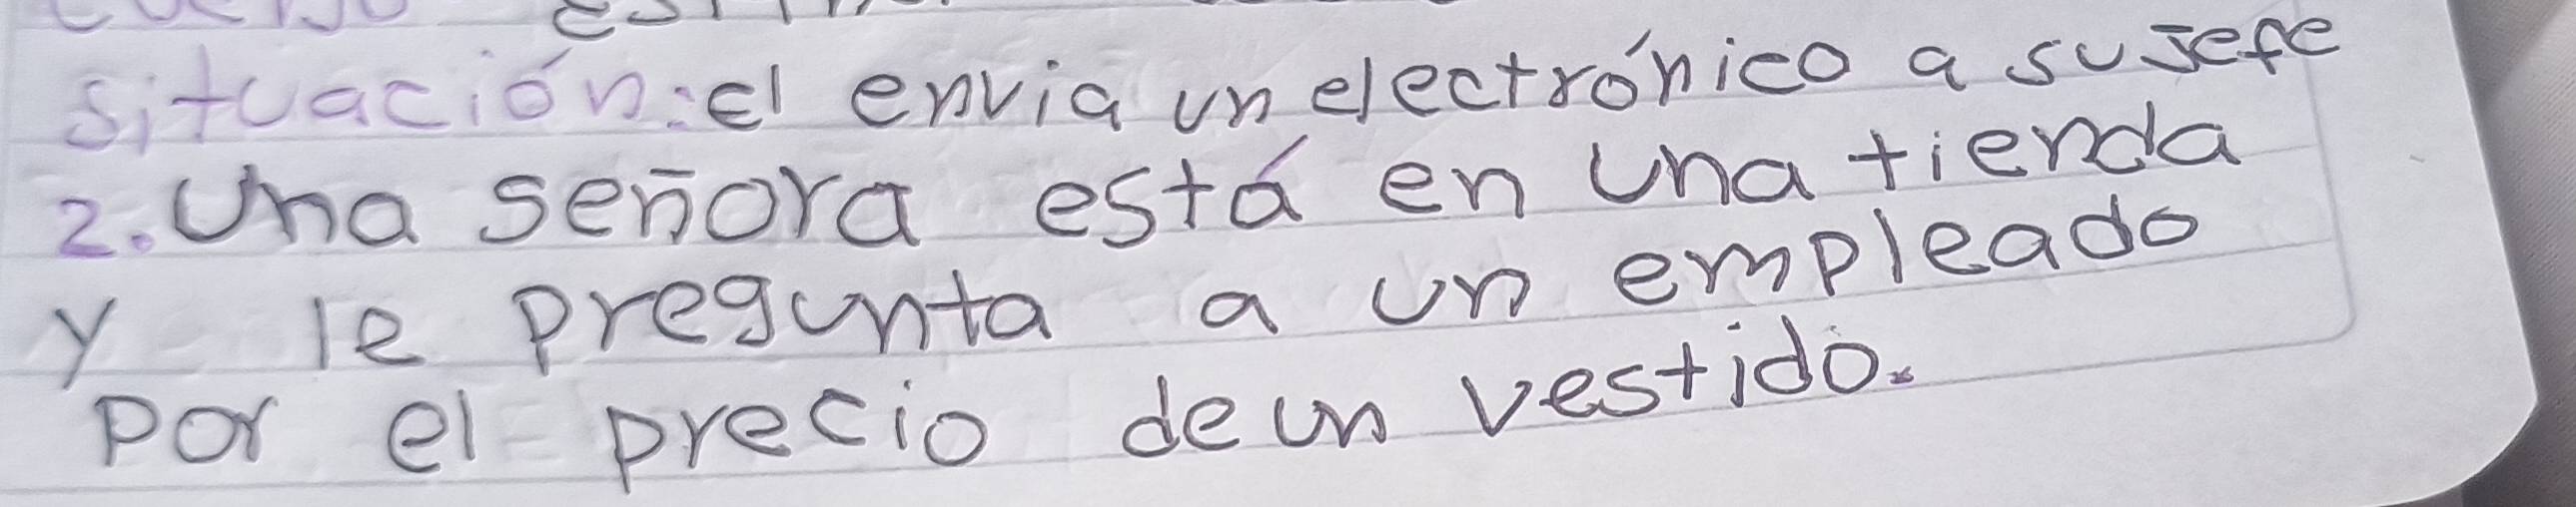 situación: el envia un electrónico a su Jefe
2. Una señora está en una tienda
y le pregunta a un empleado
por el precio de un vestido.